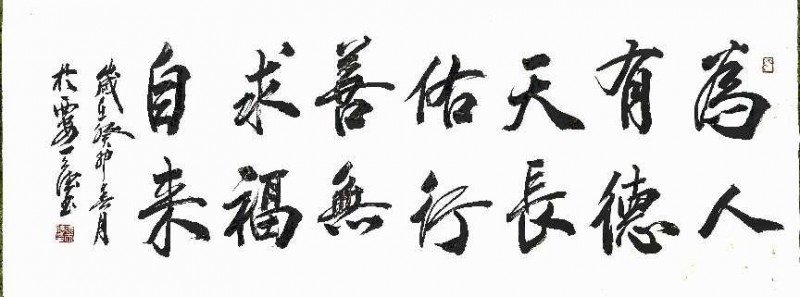 為人
有德
天長
佑行
善無
求福
自来
歲在癸卯春月
於